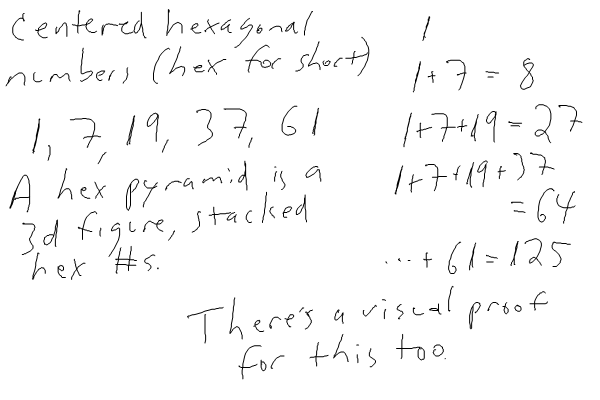 Centered hexagonal
numbers (hex for short)
1, 7, 19, 37, 61
A hex pyramid is a
3d figure, stacked
hex #s.
1
1+7 = 8
1+7+19=27
1+7+19+37
=64
...+ 61=125
There's a visual proof
for this too.